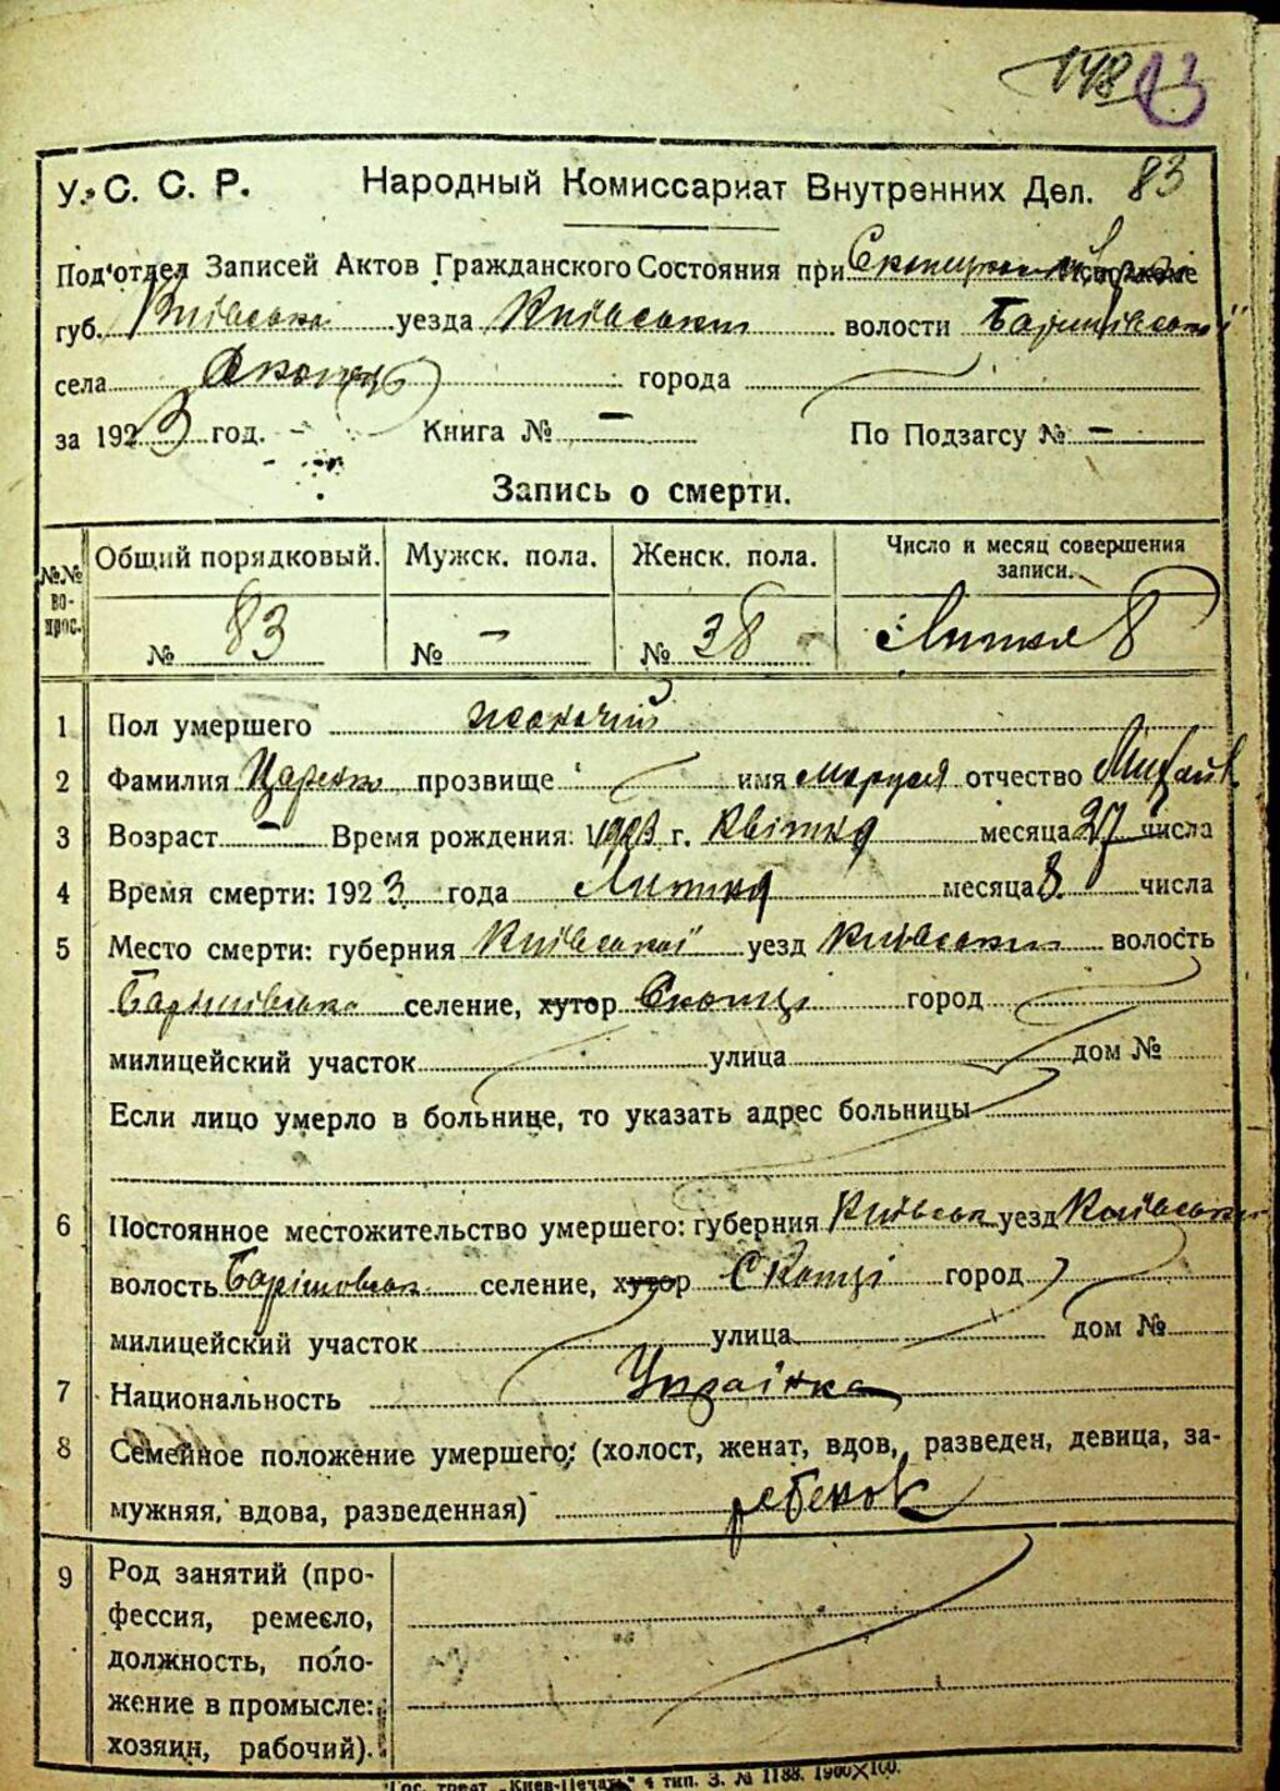 148 13
У. С. С. Р. Народный Комиссариат Внутренних Дел. 83
Под'отдел Записей Актов Гражданского Состояния при Исполкоме
губ. Київської уезда Київськ волости Баришівської
села Скопці города
за 1923 год. Книга № — По Подзагсу № —
Запись о смерти.
№№ вопрос. Общий порядковый. Мужск. пола. Женск. пола. Число и месяц совершения записи.
№ 83 № — № 38 Липня 8
1 Пол умершего жіночий
2 Фамилия прозвище имя Маруся отчество Михайл
3 Возраст — Время рождения: 1923 г. Квітня месяца 27 числа
4 Время смерти: 1923 года Липня месяца 8 числа
5 Место смерти: губерния Київської уезд Київськ волость
Баришівська селение, хутор Скопці город
милицейский участок улица дом №
Если лицо умерло в больнице, то указать адрес больницы
6 Постоянное местожительство умершего: губерния Київськ уезд Київськ
волость Барішовськ селение, хутор Скопці город
милицейский участок улица дом №
7 Национальность Українка
8 Семейное положение умершего: (холост, женат, вдов, разведен, девица, за-
мужняя, вдова, разведенная) ребенок
9 Род занятий (про-
фессия, ремесло,
должность, поло-
жение в промысле:
хозяин, рабочий).
Гос. трест „Киев-Печать" 4 тип. З. № 1188. 1900×100.